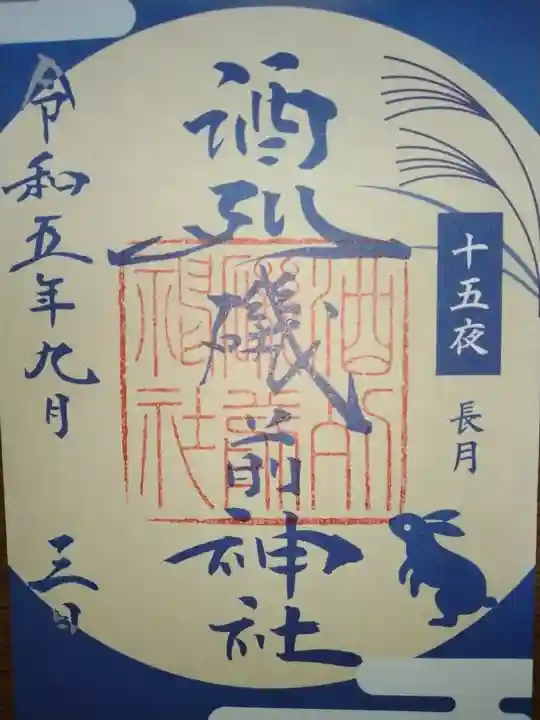 十五夜
長月
酒列磯前神社
酒列
磯前
神社
令和五年九月三日